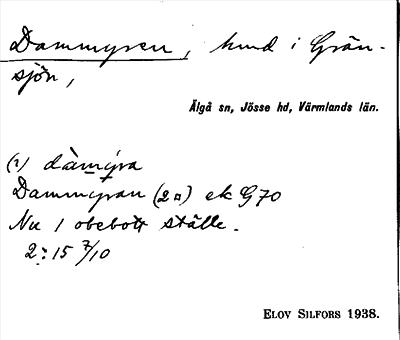 Dammyren, hmd i Grän-
sjön,
Älgå sn, Jösse hd, Värmlands län.
(?) dàmýra
Dammyran (2¤) ek G70
Nu 1 obebott ställe.
2:15 7/10
ELOV SILFORS 1938.